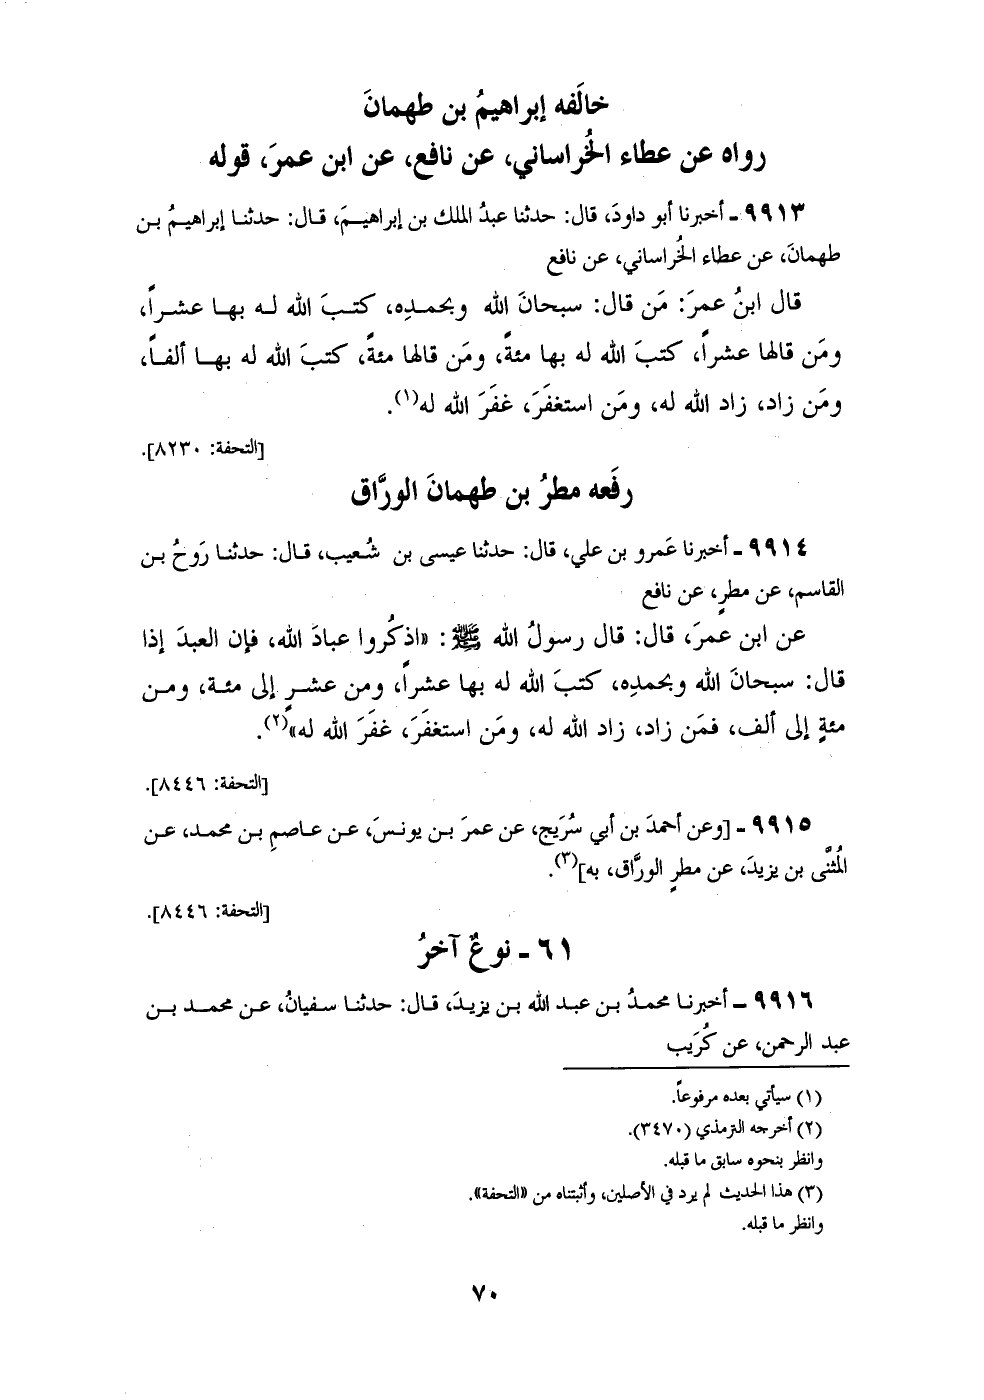 خالَفه إبراهيمُ بن طهمانَ
رواه عن عطاء الخُراساني، عن نافع، عن ابن عمرَ، قوله
٩٩١٣ - أخبرنا أبو داودَ، قال: حدثنا عبدُ الملك بن إبراهيمَ، قال: حدثنا إبراهيمُ بن
طهمانَ، عن عطاء الخُراساني، عن نافع
قال ابنُ عمرَ: مَن قال: سبحانَ الله وبحمدِه، كتبَ الله له بها عشراً،
ومَن قالها عشراً، كتبَ الله له بها مئةً، ومَن قالها مئةً، كتبَ الله له بها ألفاً،
ومَن زاد، زاد الله له، ومَن استغفَرَ، غفَرَ الله له(١).
[التحفة: ٨٢٣٠].
رفَعه مطرُ بن طهمانَ الورَّاق
٩٩١٤ - أخبرنا عَمرو بن علي، قال: حدثنا عيسى بن شُعيب، قال: حدثنا رَوحُ بن
القاسم، عن مطرٍ، عن نافع
عن ابن عمرَ، قال: قال رسولُ الله ﷺ: «اذكُروا عبادَ الله، فإن العبدَ إذا
قال: سبحانَ الله وبحمدِه، كتبَ الله له بها عشراً، ومن عشرٍ إلى مئة، ومن
مئةٍ إلى ألف، فمَن زاد، زاد الله له، ومَن استغفَرَ، غفَرَ الله له»(٢).
[التحفة: ٨٤٤٦].
٩٩١٥ - [وعن أحمدَ بن أبي سُرَيج، عن عمرَ بن يونسَ، عن عاصمِ بن محمد، عن
المُثنَّى بن يزيدَ، عن مطرٍ الورَّاق، به](٣).
[التحفة: ٨٤٤٦].
٦١ - نوعٌ آخرُ
٩٩١٦ - أخبرنا محمدُ بن عبد الله بن يزيدَ، قال: حدثنا سفيانُ، عن محمد بن
عبد الرحمن، عن كُرَيب
(١) سيأتي بعده مرفوعاً.
(٢) أخرجه الترمذي (٣٤٧٠).
وانظر بنحوه سابق ما قبله.
(٣) هذا الحديث لم يرد في الأصلين، وأثبتناه من «التحفة».
وانظر ما قبله.
٧٠